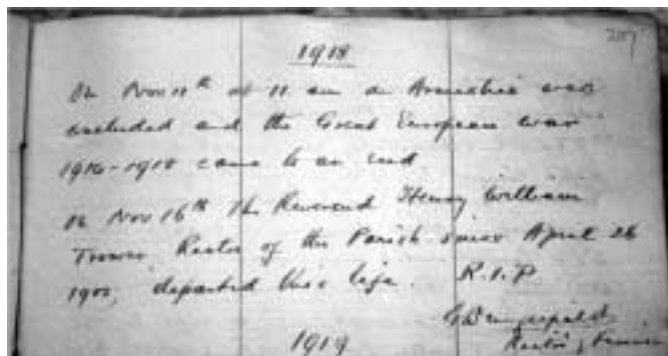 1918
On Nov 11th at 11 am an Armistice was
concluded and the Great European war
1914-1918 came to an end.
On Nov 16th the Reverend Henry William
Rector of the Parish since April 26
departed this life. R.I.P
Rector
1919